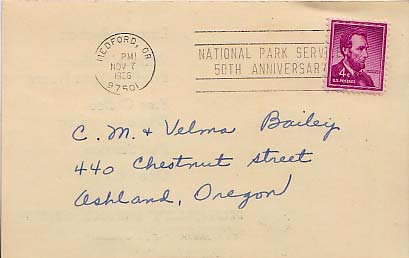 MEDFORD, OR
PM
NOV 7
1966
97501
NATIONAL PARK SERV
50TH ANNIVERSARY
4¢
U.S. POSTAGE
C. M. & Velma Bailey
440 Chestnut street
Ashland, Oregon